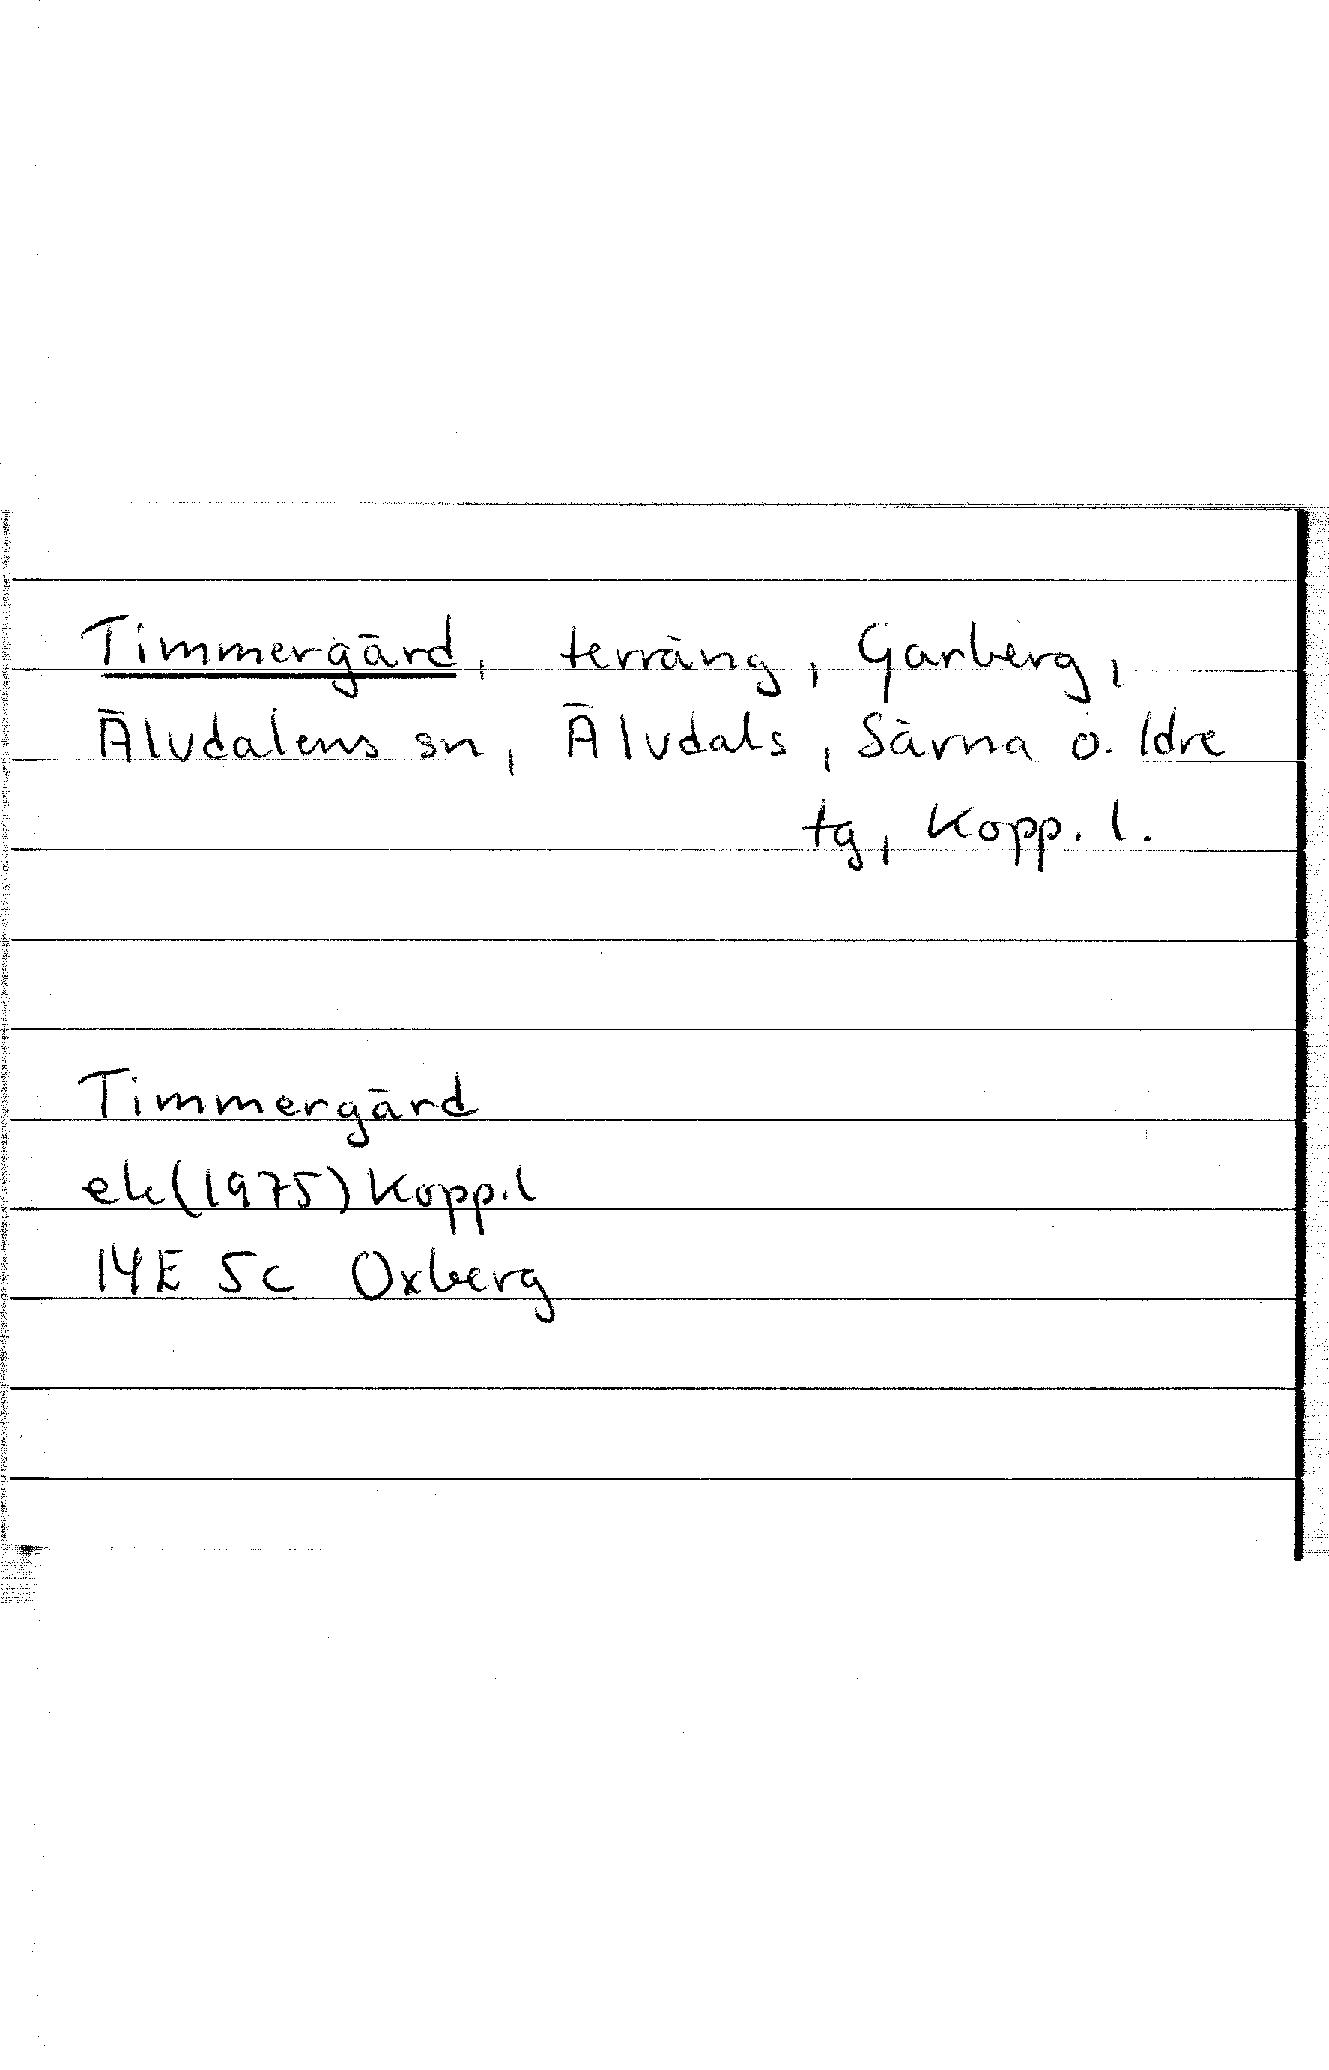 Timmergärd, terräng, Garberg,
Älvdalens sn, Älvdals, Särna o. Idre
tg, Kopp. l.
Timmergärd
ek(1975) Kopp.l
14E 5c Oxberg